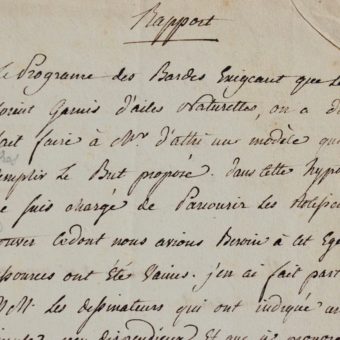 Rapport
Le Programe des Bardes Exigeant que Le
soient Garnis d'ailes Naturelles, on a d
fait faire à Mr. d'athi une modèle qu
remplir Le But proposé. dans cette hypo
je suis chargé de Parcourir Les
trouver Cedont nous avions Besoin à cet Eg
ressources ont Été Vaines. j'en ai fait part
MM. Les dessinateurs qui ont indiqué
dispendieux Et que